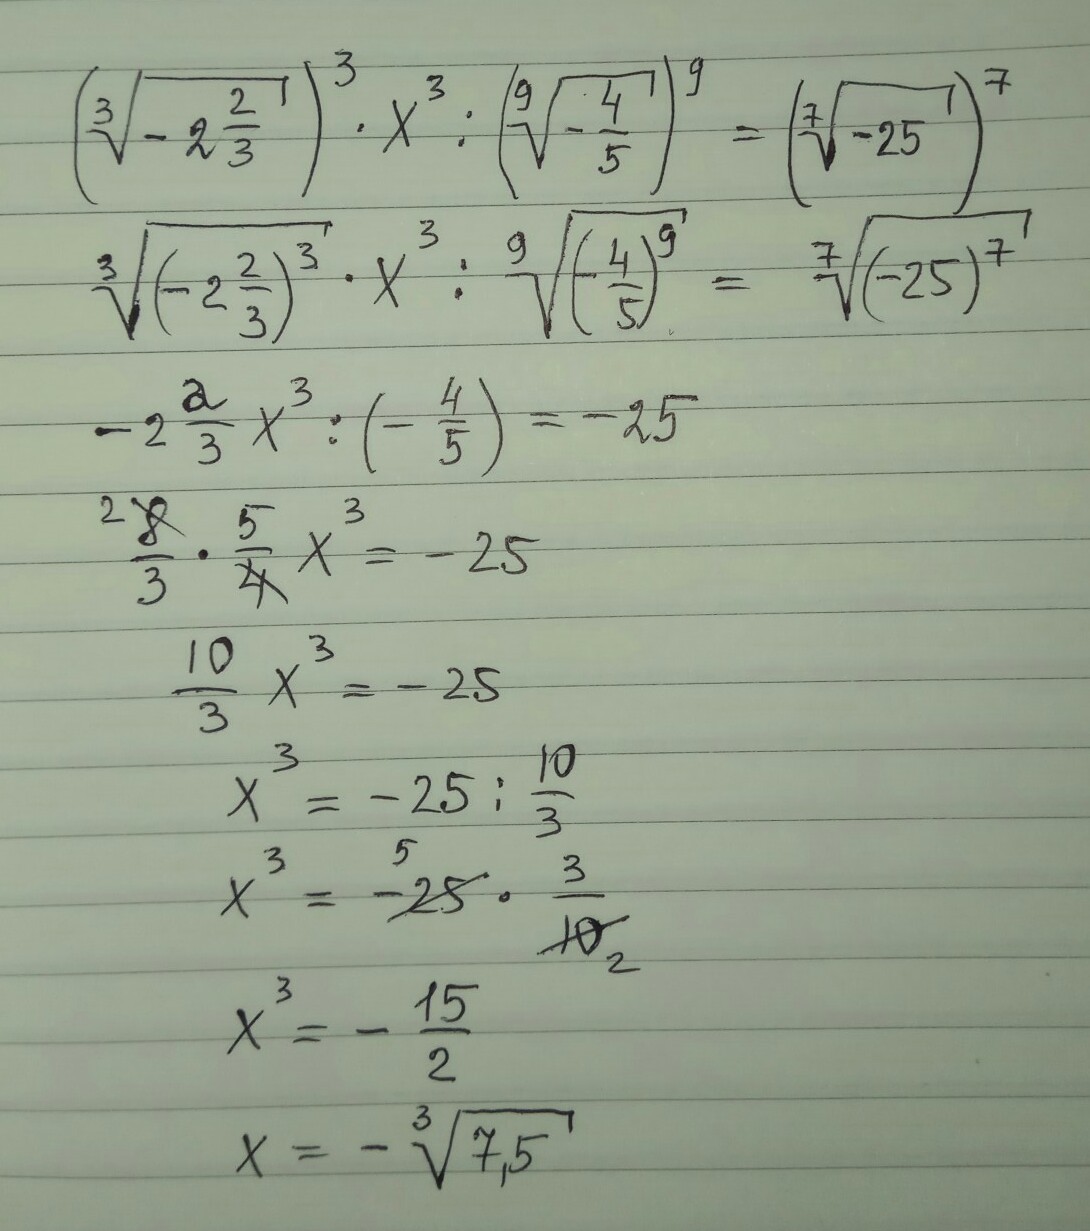 (∛(-2 2/3))³ · x³ : (⁹√(-4/5))⁹ = (⁷√(-25))⁷
∛((-2 2/3)³) · x³ : ⁹√((-4/5)⁹) = ⁷√((-25)⁷)
-2 2/3 x³ : (-4/5) = -25
2 8/3 · 5/4 x³ = -25
10/3 x³ = -25
x³ = -25 : 10/3
x³ = -25 5 · 3/10 2
x³ = - 15/2
x = - ∛7,5